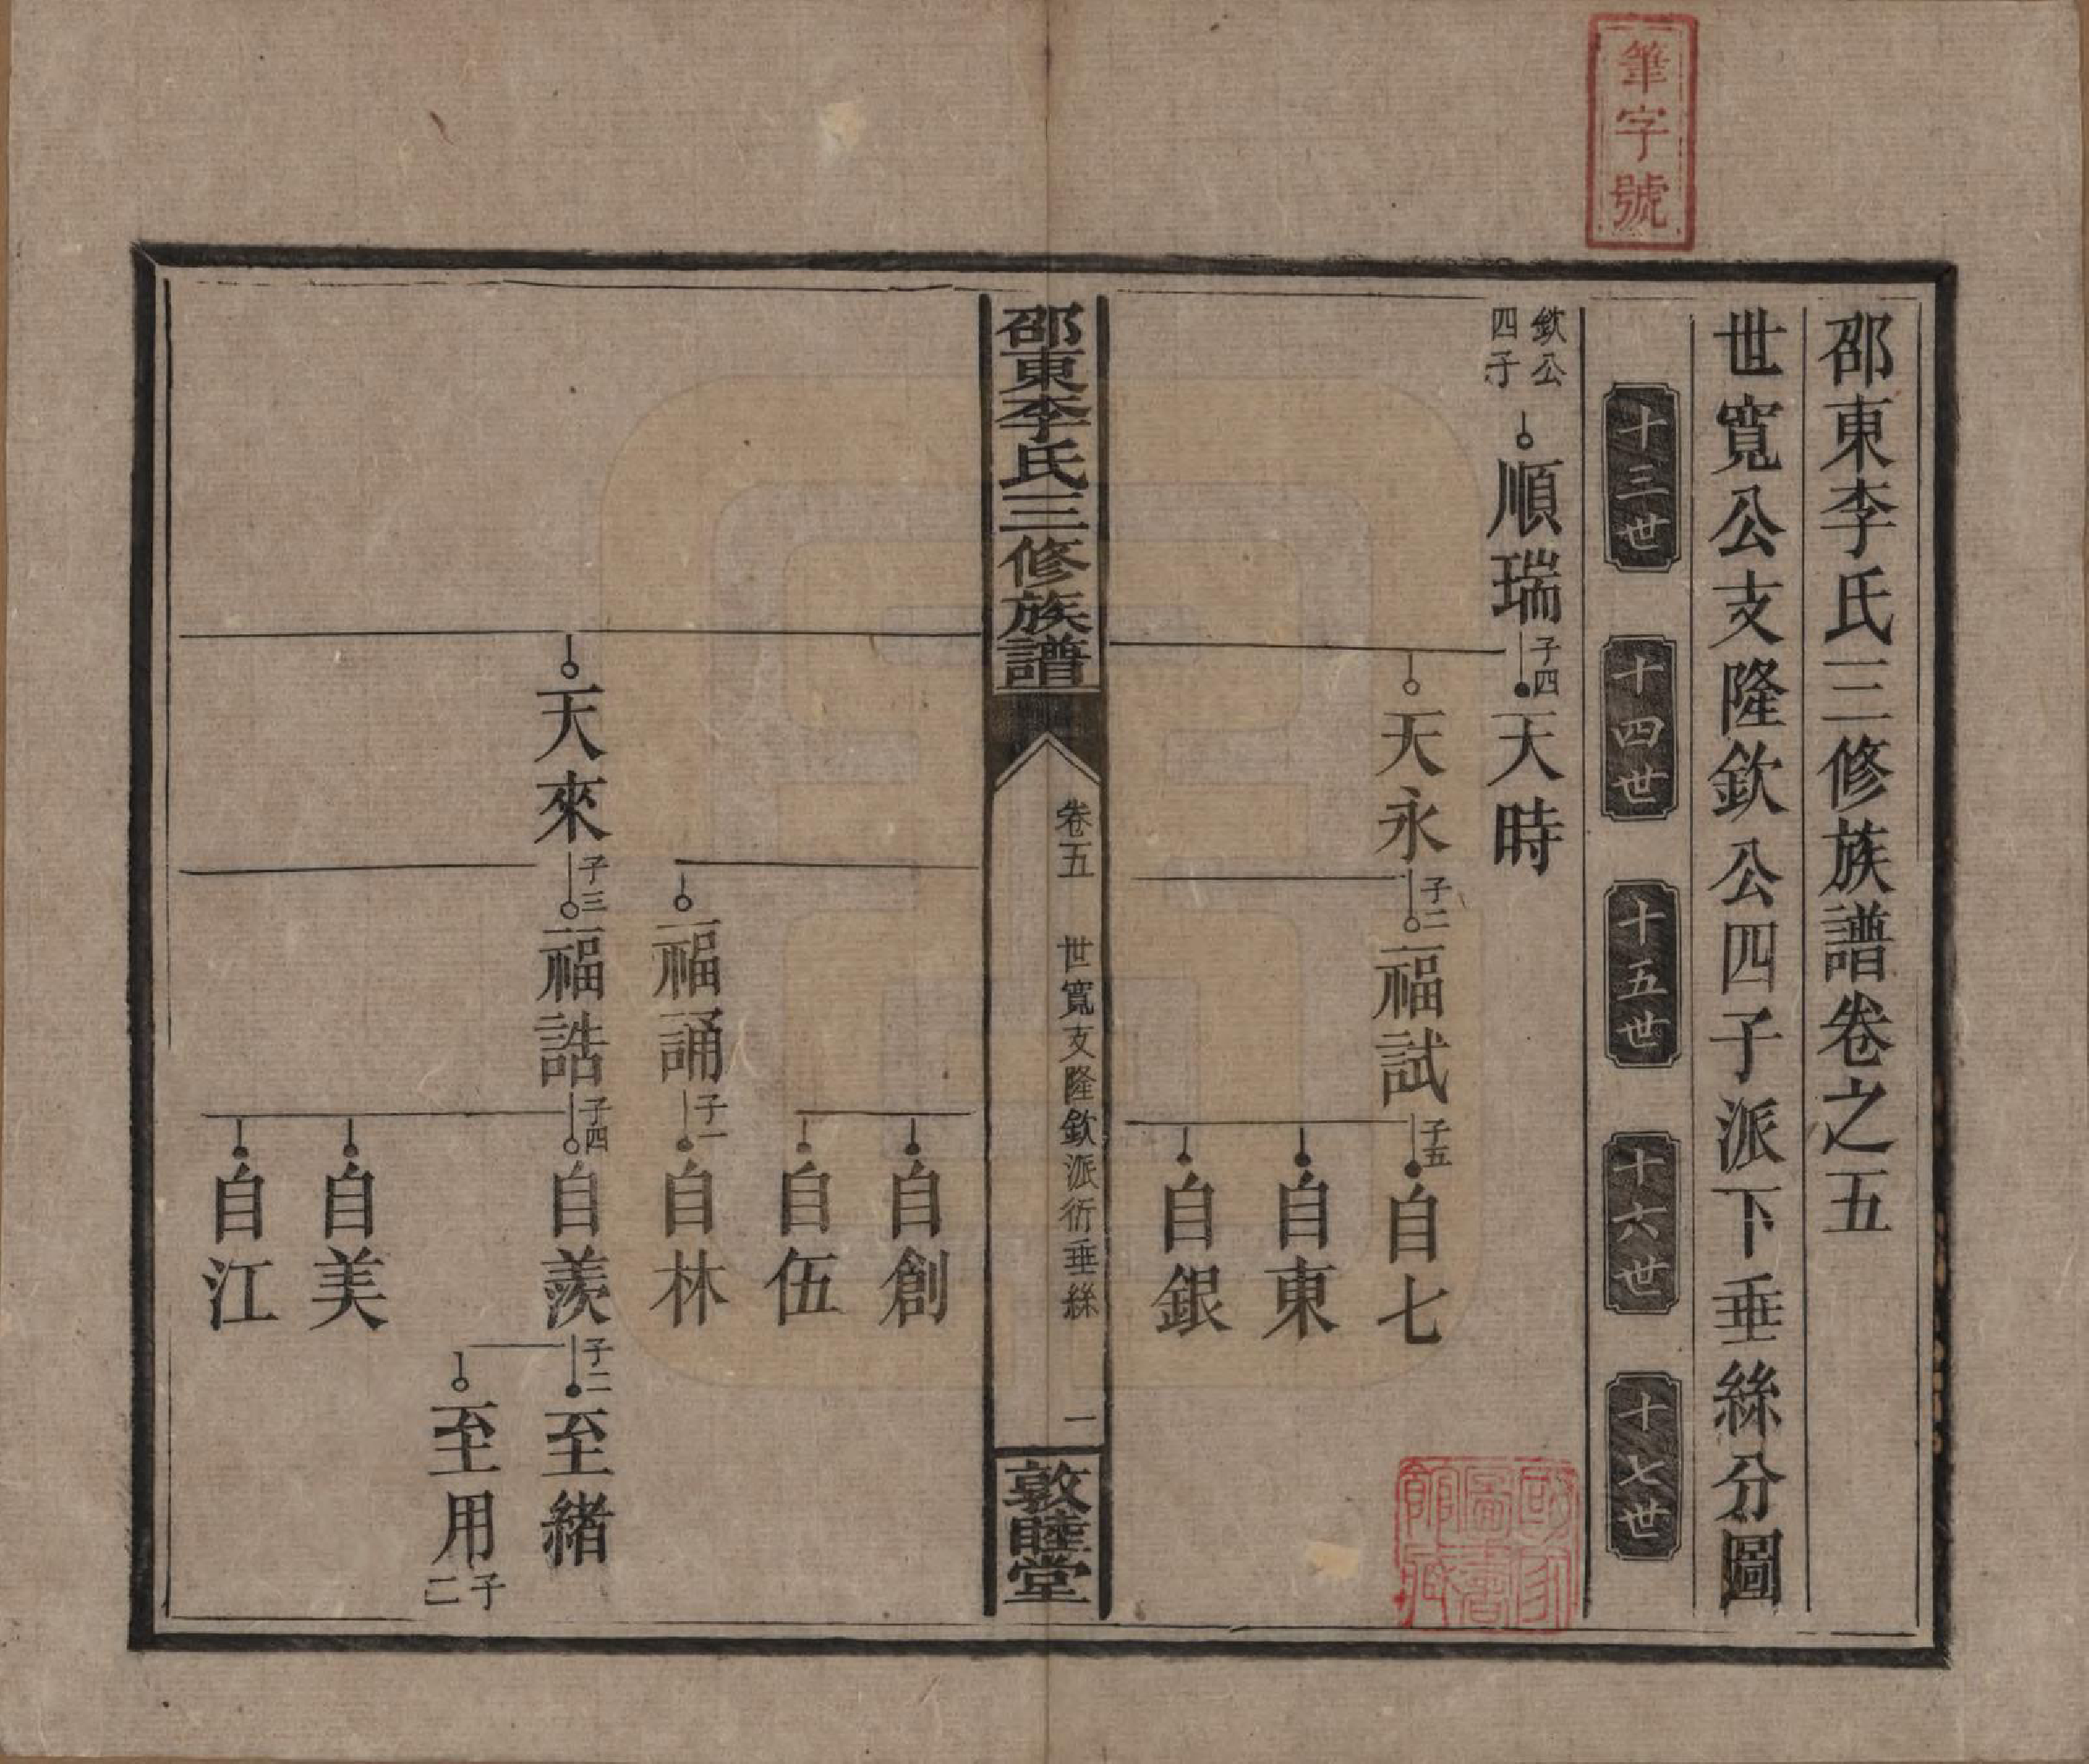 筆字號
邵東李氏三修族譜卷之五
世寬公支隆欽公四子派下垂絲分圖
十三世
十四世
十五世
十六世
十七世
欽公四子
順瑞
子四
天時
天永
子二
福試
子五
自七
自東
自銀
國家圖書館藏
邵東李氏三修族譜
卷五
世寬支隆欽派衍垂絲
一
敦睦堂
自創
自伍
福誦
子一
自林
天來
子三
福誥
子四
自羨
子二
至緒
至用
子二
自美
自江